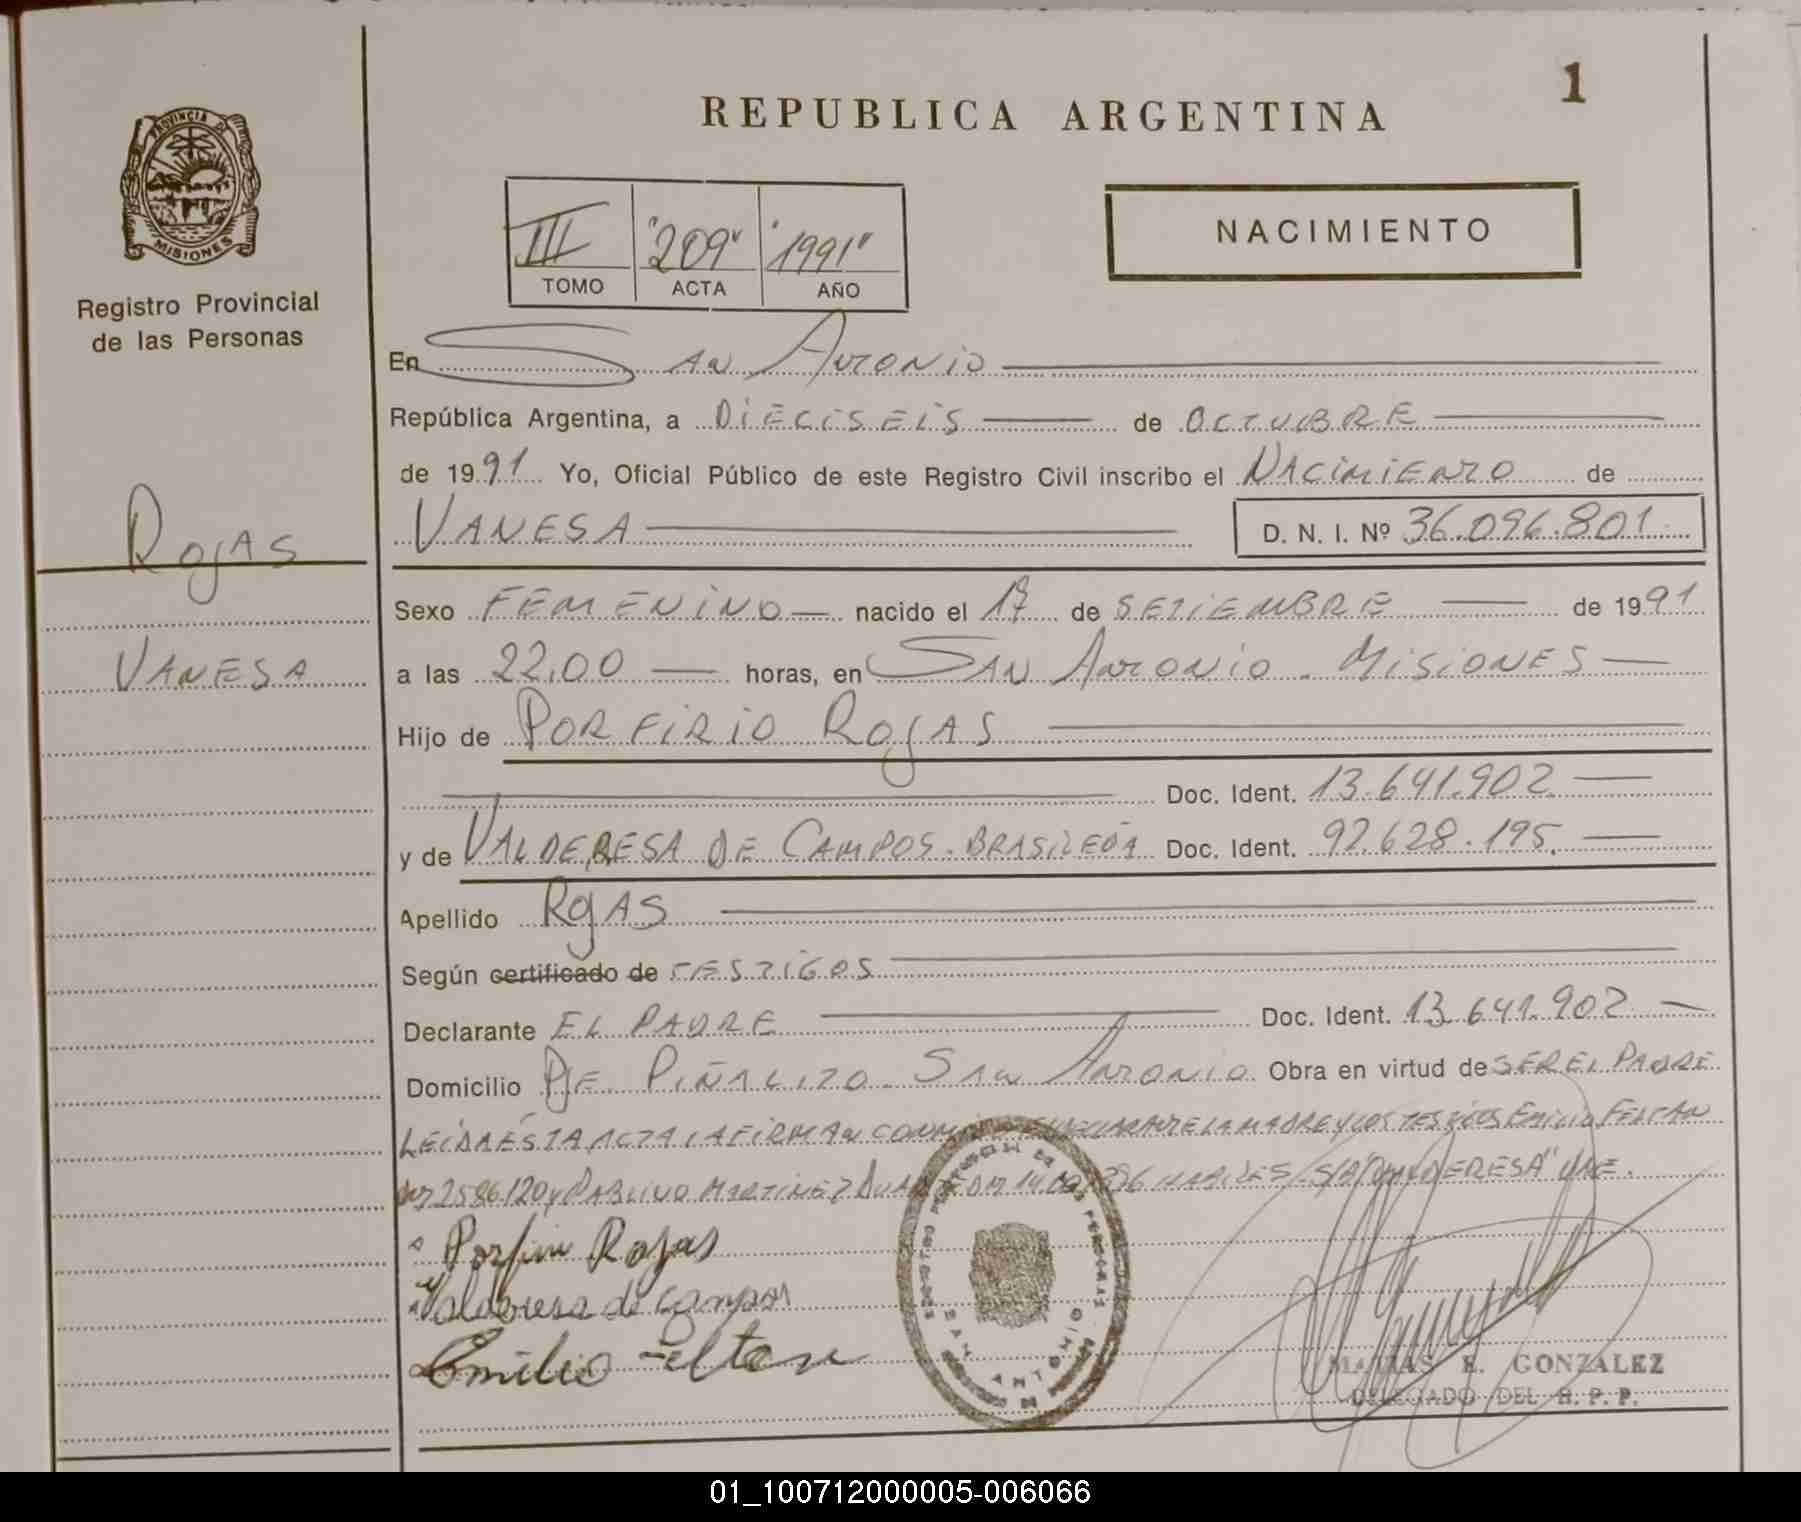 1
REPUBLICA ARGENTINA
PROVINCIA DE
MISIONES
Registro Provincial
de las Personas
NACIMIENTO
III "209" "1991"
TOMO ACTA AÑO
En SAN ANTONIO
República Argentina, a DIECISEIS de OCTUBRE
de 1991 Yo, Oficial Público de este Registro Civil inscribo el NACIMIENTO de
VANESA D. N. I. Nº 36.096.801
ROJAS
VANESA
Sexo FEMENINO nacido el 17 de SETIEMBRE de 1991
a las 22,00 horas, en SAN ANTONIO. MISIONES
Hijo de PORFIRIO ROJAS
Doc. Ident. 13.641.902
y de VALDERESA DE CAMPOS. BRASILEÑA Doc. Ident. 92.628.195.
Apellido ROJAS
Según certificado de TESTIGOS
Declarante EL PADRE Doc. Ident. 13.641.902
Domicilio PJE. PIÑALITO. SAN ANTONIO Obra en virtud de SER EL PADRE
LEIDA ESTA ACTA LA FIRMAN DECLARANTE LA MADRE Y LOS TESTIGOS EMILIO FELTAN
Y PABLINO MARTINEZ "VALDERESA" VALE.
Porfirio Rojas
Valderesa de Campos
Emilio Feltan
SAN ANTONIO
MATIAS E. GONZALEZ
DELEGADO DEL R. P. P.
01_100712000005-006066